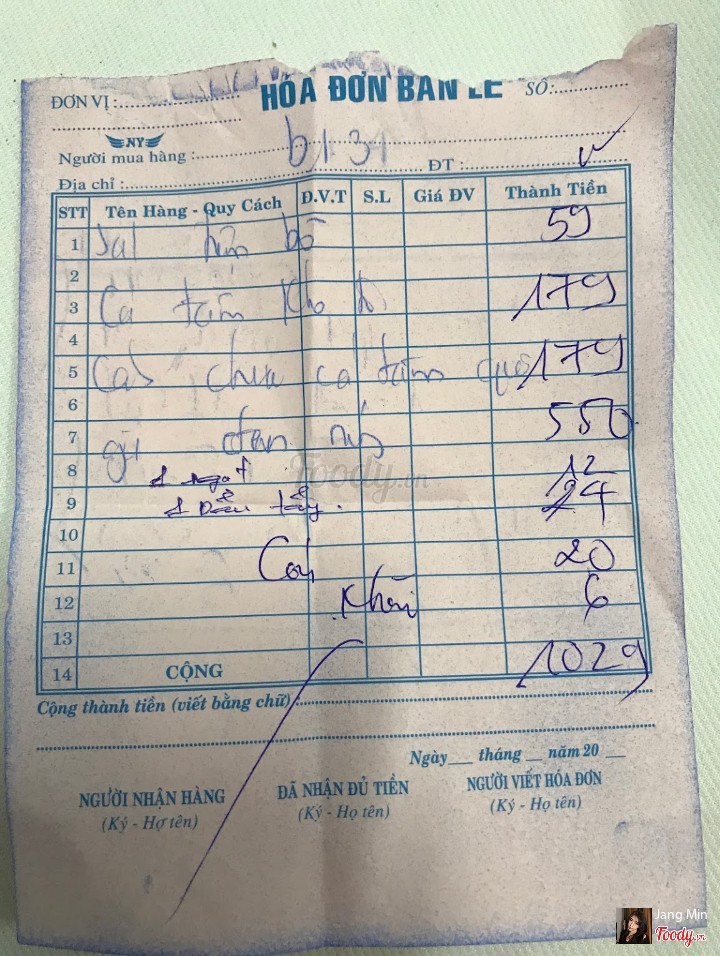 HÓA ĐƠN BÁN LẺ
ĐƠN VỊ: SỐ:
NY
Người mua hàng: b1.31 ĐT:
Địa chỉ:
STT Tên Hàng - Quy Cách Đ.V.T S.L Giá ĐV Thành Tiền
1 59
2
3 Cá tầm kho tộ 179
4
5 Canh chua cá tầm 179
6
7 550
8 12
9 1 Dầu tây 24
10
11 20
12 Khăn 6
13
14 CỘNG 1029
Cộng thành tiền (viết bằng chữ):
Ngày tháng năm 20
NGƯỜI NHẬN HÀNG ĐÃ NHẬN ĐỦ TIỀN NGƯỜI VIẾT HÓA ĐƠN
(Ký - Họ tên) (Ký - Họ tên) (Ký - Họ tên)
Foody.vn
Jang Min
Foody.vn